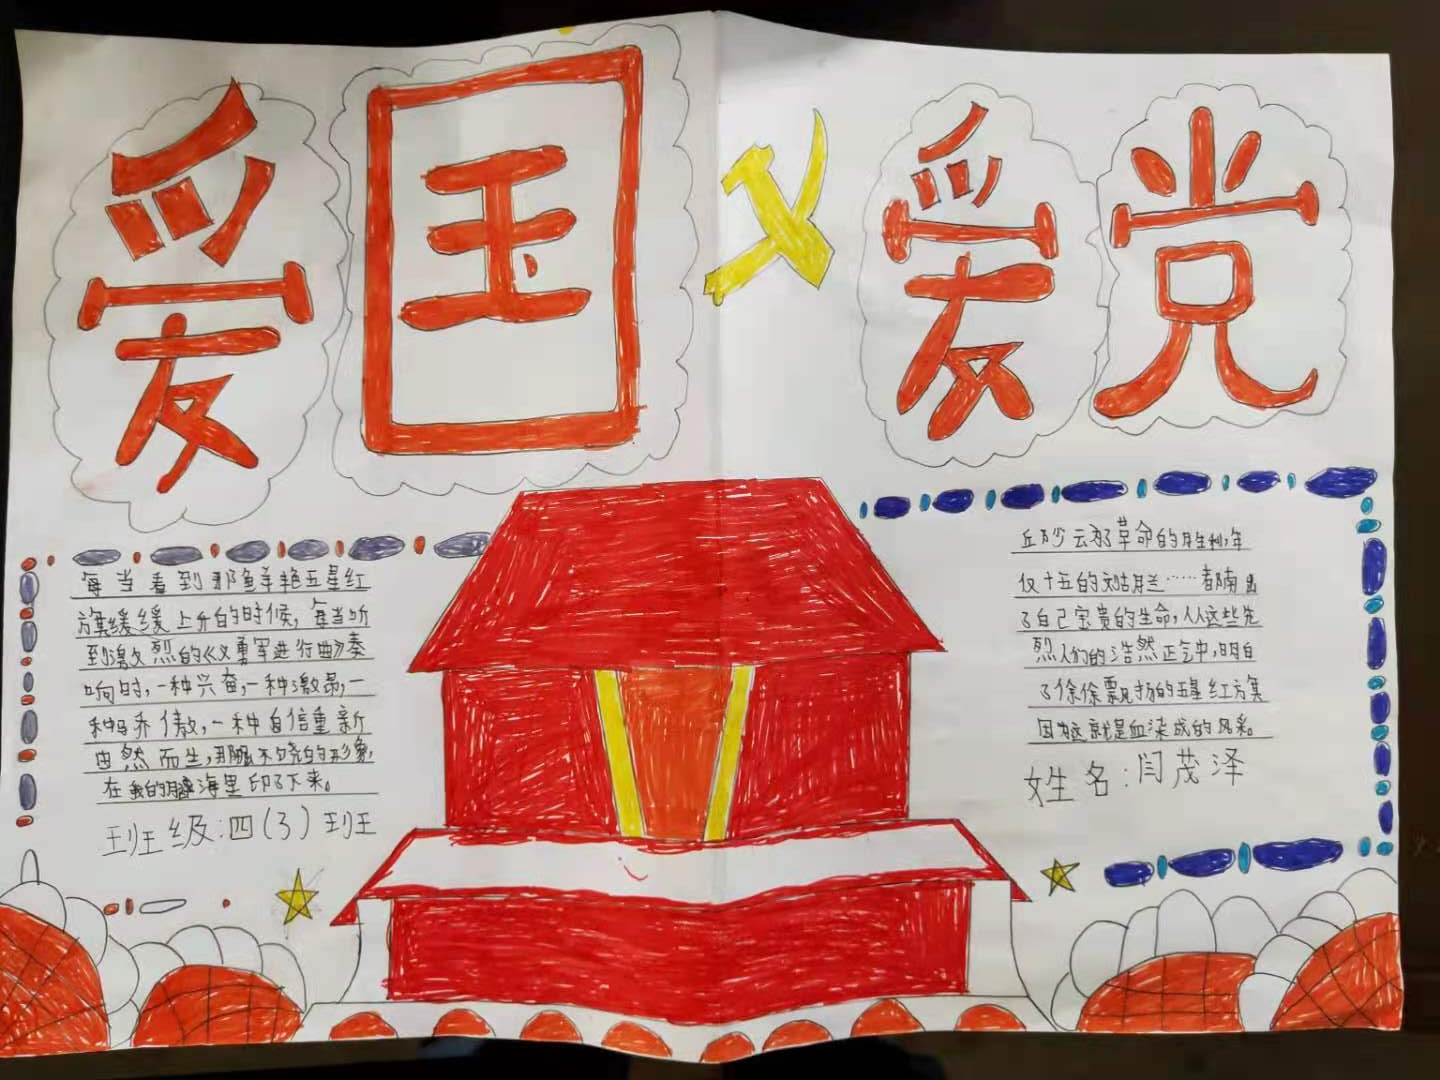 爱国
爱党
每当看到那鲜艳五星红
旗缓缓上升的时候，每当听
到激烈的《义勇军进行曲》奏
响时，一种兴奋，一种激昂，一
种骄傲，一种自信重新
由然而生，那不饶的形象，
在我的脑海里印了下来。
班级：四(3)班
革命的胜利，年
仅十五的刘胡兰……都献出
了自己宝贵的生命，从这些先
烈人们的浩然正气中，明白
了徐徐飘扬的五星红方旗
因为这就是血染成的风采。
姓名：闫茂泽